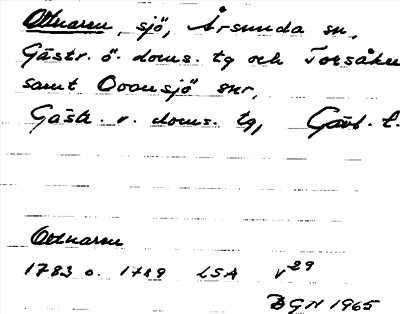 Ottnaren, sjö, Årsunda sn,
Gästr. ö. doms. tg och Torsåker
samt Ovansjö snr,
Gästr. v. doms. tg, Gävl. l.
Ottnaren
1783 o. 1789 LSA V29
BGN 1965